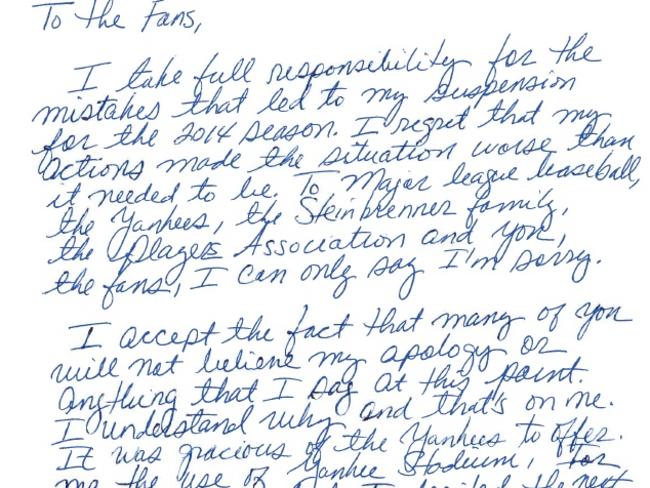 To the Fans,
I take full responsibility for the
mistakes that led to my suspension
for the 2014 season. I regret that my
actions made the situation worse than
it needed to be. To Major league baseball,
the Yankees, the Steinbrenner family,
the Players Association and you,
the fans, I can only say I'm sorry.
I accept the fact that many of you
will not believe my apology or
anything that I say at this point.
I understand why and that's on me.
It was gracious of the Yankees to offer
me the use of Yankee Stadium, for
the next